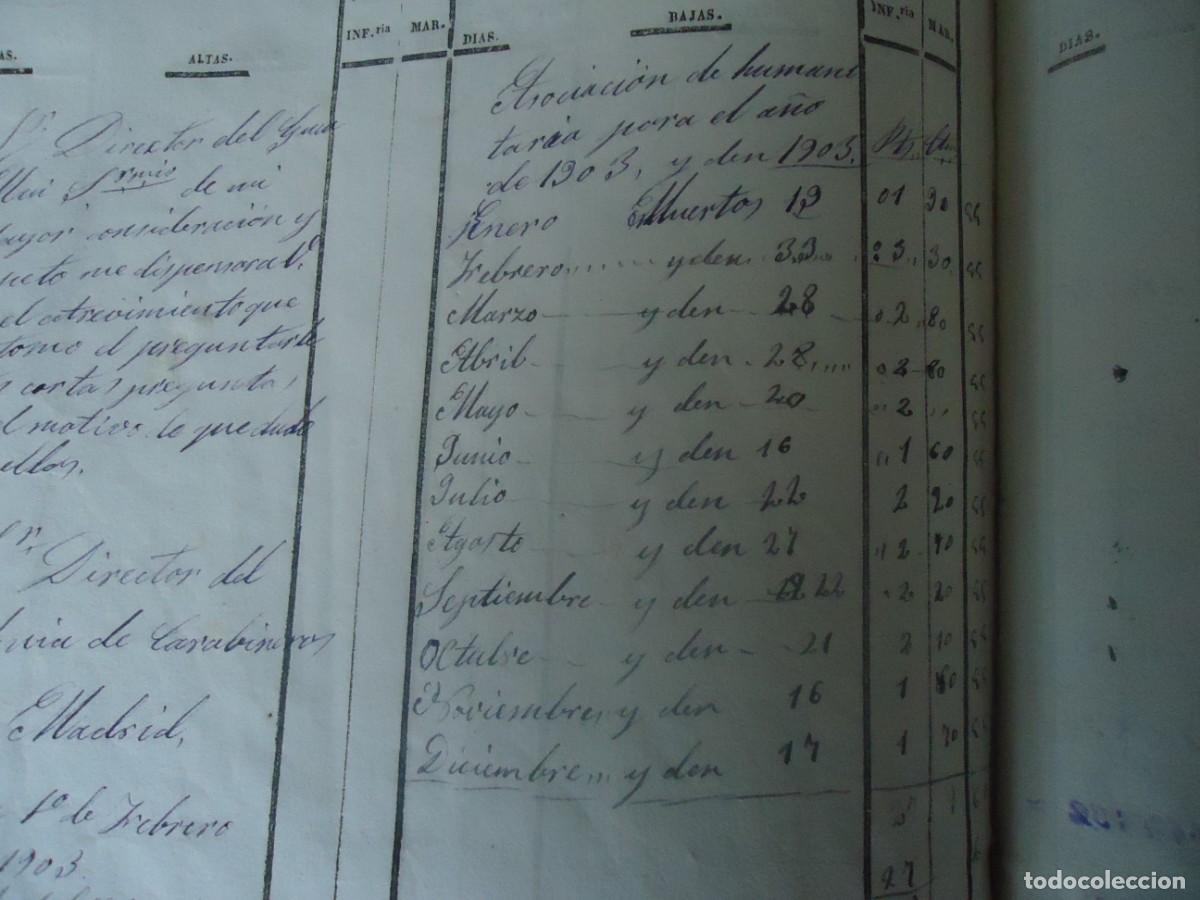 AS.
ALTAS.
INF.ria
MAR.
Sr. Director del Guia
Mui Sr mio de mi
mayor consideración y
me dispensara V.
el atrevimiento que
tomo el preguntarle
cortas preguntas
el motivo le que dudo
ellas.
Sr.
Director del
Guia de Carabineros
Madrid,
1º de Febrero
1903.
DIAS.
BAJAS.
INF.ria
MAR.
Asociación de humani
taria para el año
de 1903, y den 1903. Pts Ctms
Enero Muertos 19 01 90
Febrero y den 33 03 30
Marzo y den 28 02 80
Abril y den 28 02 80
Mayo y den 20 2
Junio y den 16 1 60
Julio y den 22 2 20
Agosto y den 27 2 70
Septiembre y den 22 2 20
Octubre y den 21 2 10
Noviembre y den 16 1 60
Diciembre y den 17 1 70
27
DIAS.
todocoleccion